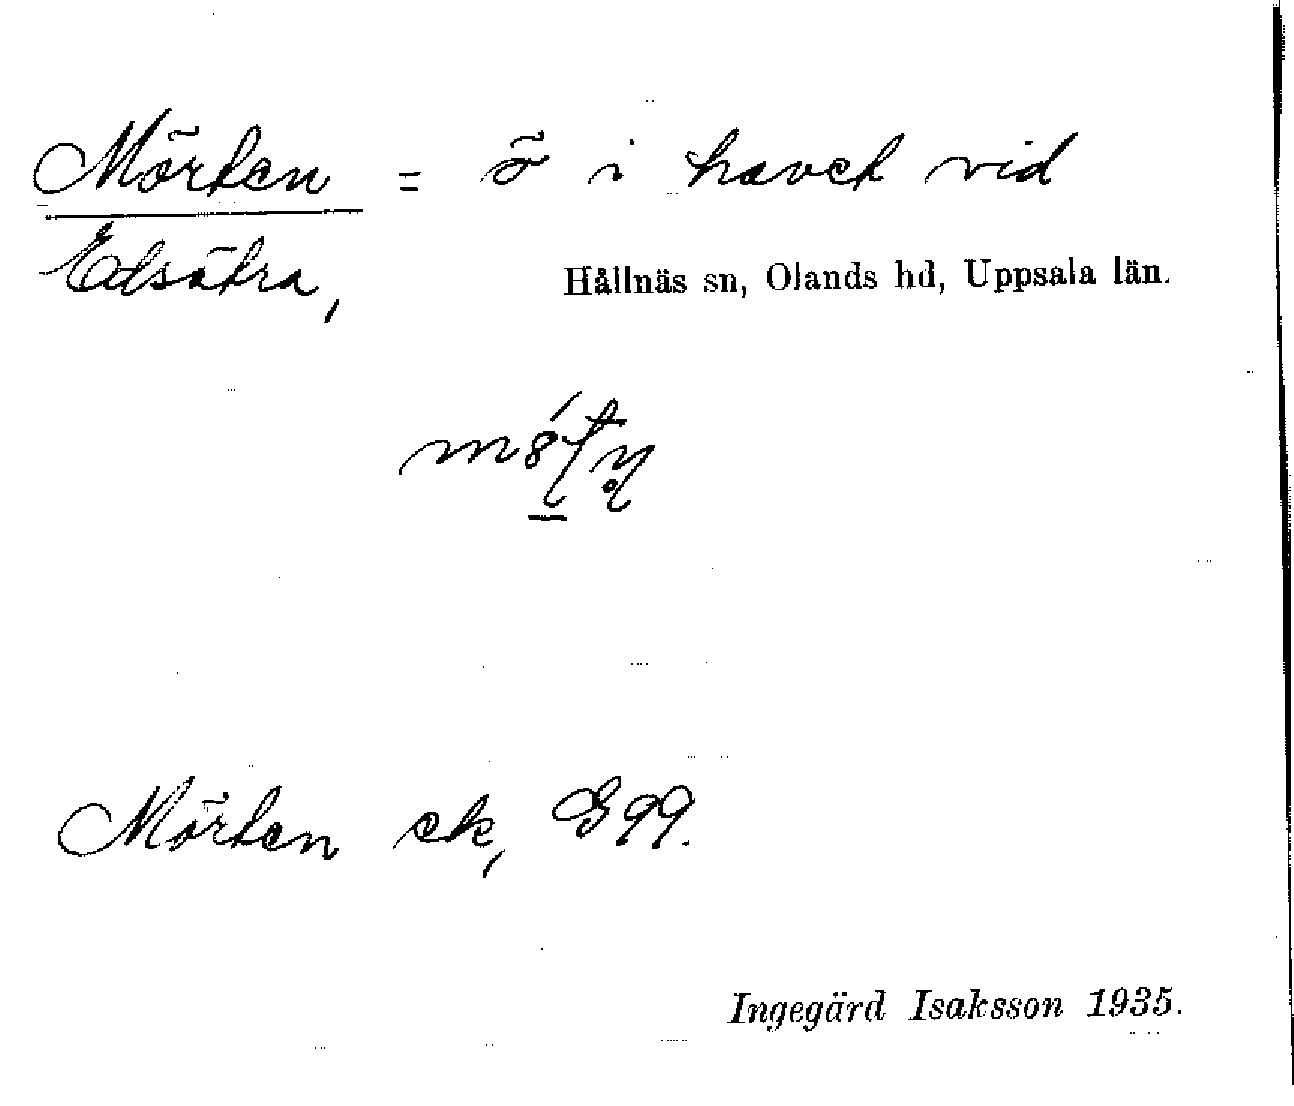 Mörten = ö i havet vid
Edsätra,
Hållnäs sn, Olands hd, Uppsala län.
Mörten ek, G 99.
Ingegärd Isaksson 1935.